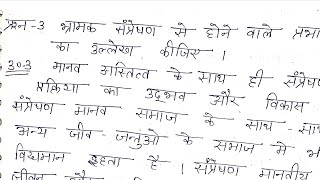 प्रश्न-3 भ्रामक संप्रेषण से होने वाले प्रभा
का उल्लेख कीजिए ।
उ०-3 मानव अस्तित्व के साथ ही संप्रेष
प्रक्रिया का उद्भव और विकास
संप्रेषण मानव समाज के साथ - सा
अन्य जीव - जन्तुओ के समाज मे भ
विद्यमान रहता है । संप्रेषण मानवीय
जीवन